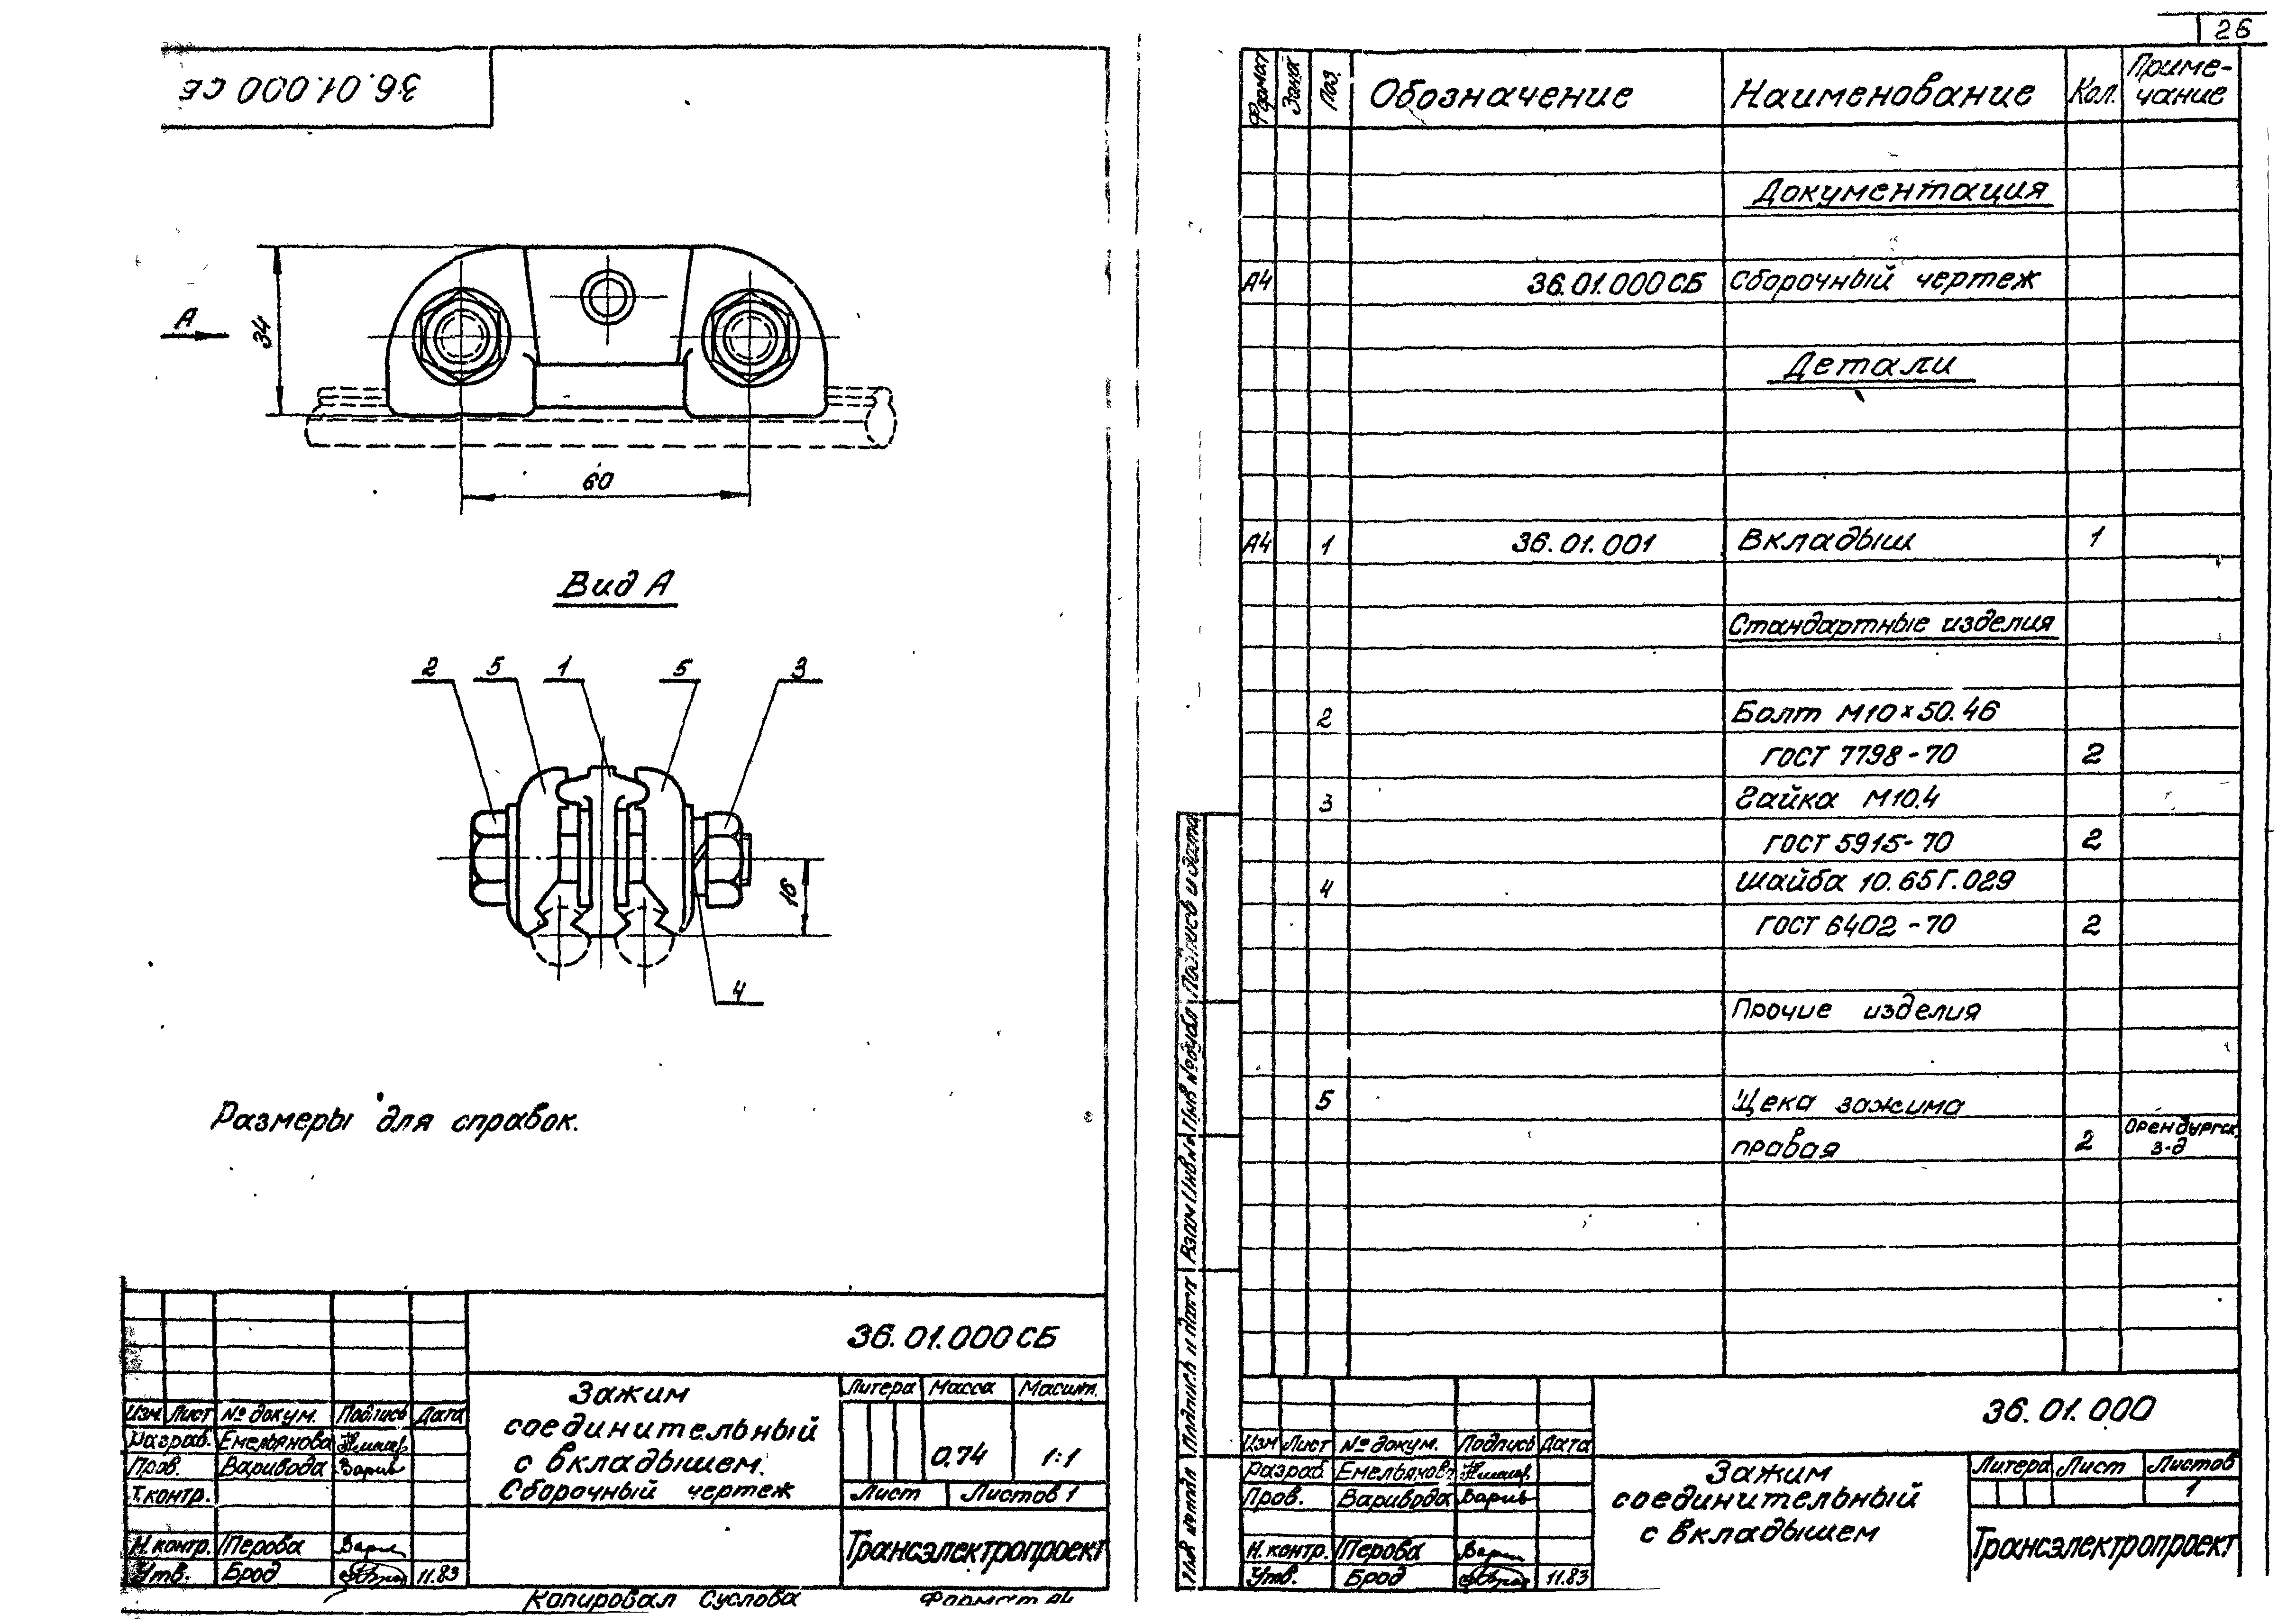 36.01.000 СБ
А
34
60
Вид А
2 5 1 5 3
16
4
Размеры для справок.
36.01.000 СБ
Зажим
соединительный
с вкладышем.
Сборочный чертеж
Литера Масса Масшт.
0,74 1:1
Лист Листов 1
Трансэлектропроект
Изм Лист № докум. Подпись Дата
Разраб. Емельянова
Пров. Варивода
Т.контр.
Н.контр. Перова
Утв. Брод 11.83
Копировал Суслова Формат А4
26
Формат Зона Поз. Обозначение Наименование Кол. Приме-
чание
Документация
А4 36.01.000 СБ Сборочный чертеж
Детали
А4 1 36.01.001 Вкладыш 1
Стандартные изделия
2 Болт М10×50.46
ГОСТ 7798-70 2
3 Гайка М10.4
ГОСТ 5915-70 2
4 Шайба 10.65Г.029
ГОСТ 6402-70 2
Прочие изделия
5 Щека зажима
правая 2 Оренбургск.
з-д
Подпись и дата
Инв № дубл
Взам Инв №
Подпись и дата
Инв № подл
36.01.000
Изм Лист № докум. Подпись Дата
Разраб Емельянова
Пров. Варивода
Н.контр. Перова
Утв. Брод 11.83
Зажим
соединительный
с вкладышем
Литера Лист Листов
1
Трансэлектропроект